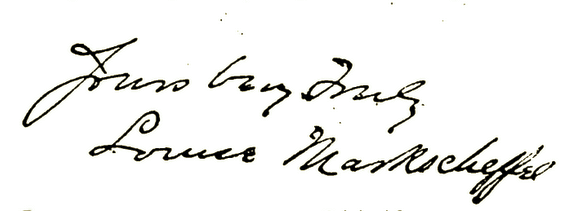 Yours Very Truly
Louise Markscheffel